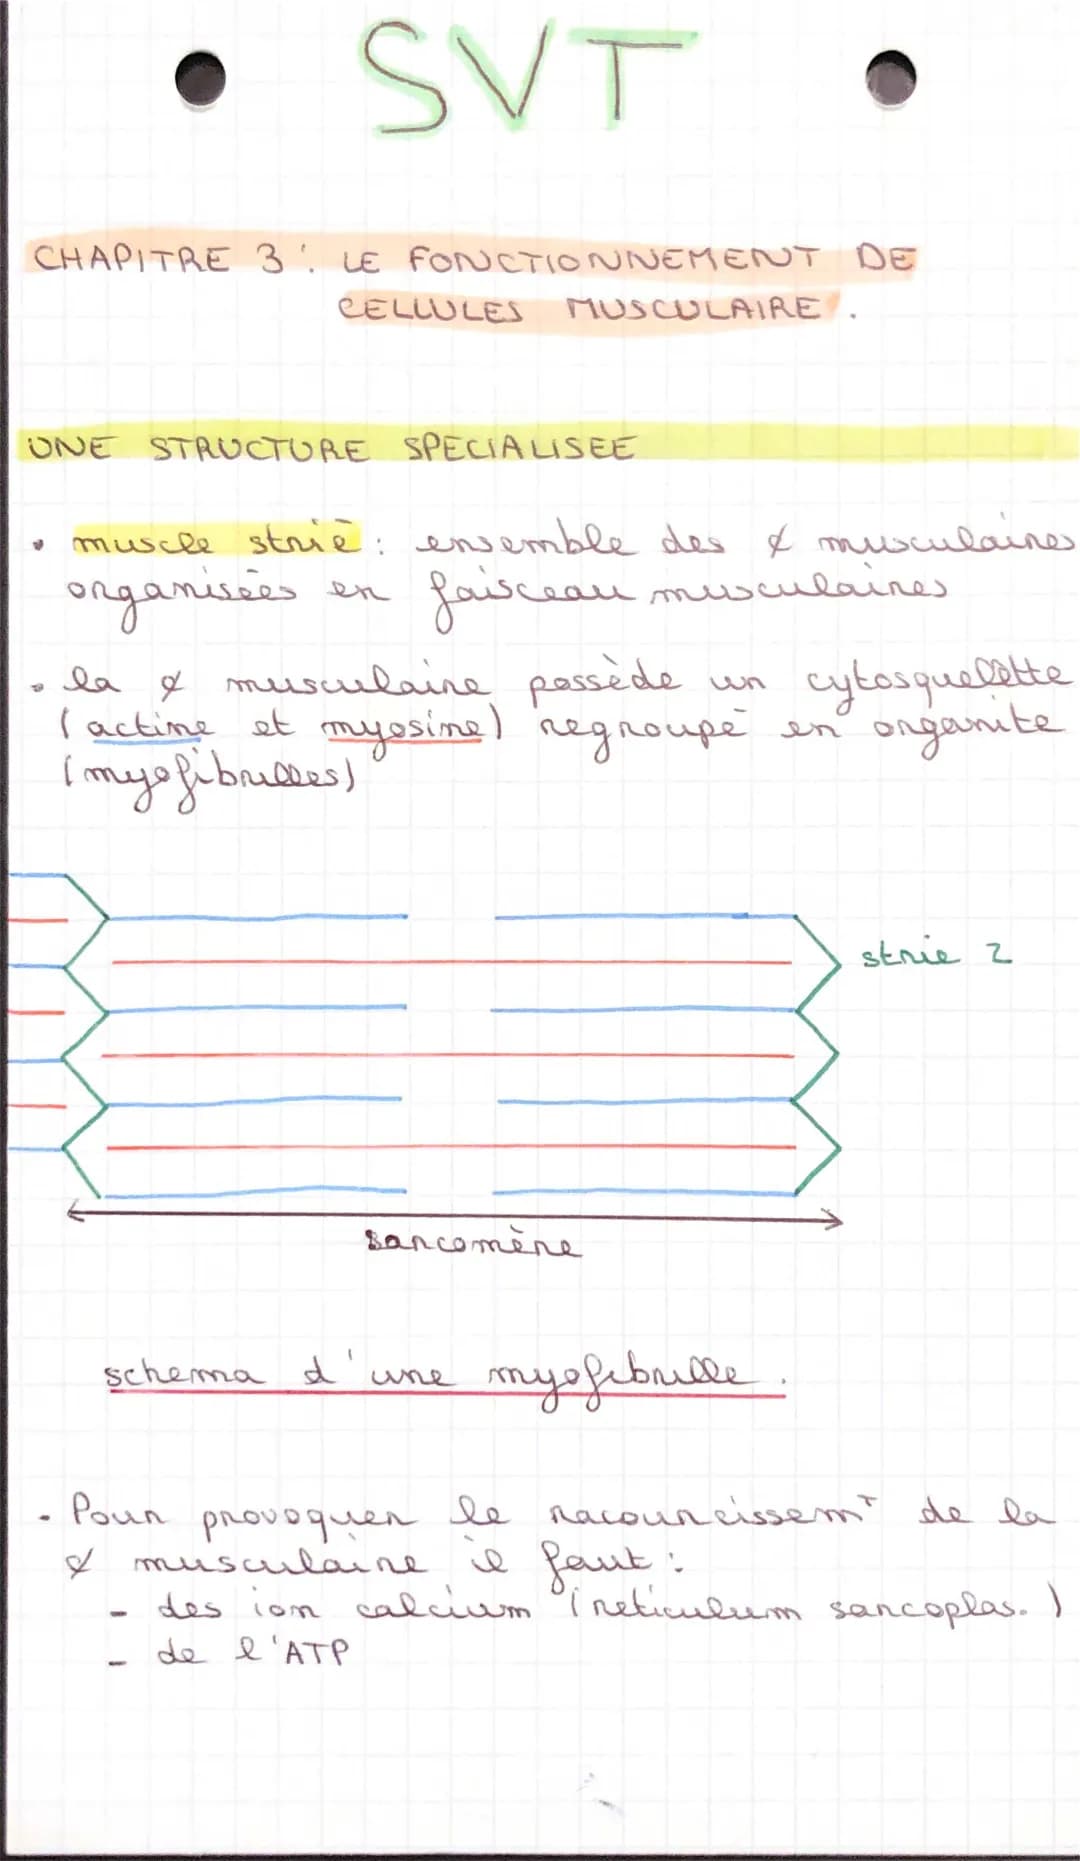 SVT
CHAPITRE 3 : LE FONCTIONNEMENT DE
CELLULES MUSCULAIRE.
UNE STRUCTURE SPECIALISEE
• muscle strié : ensemble des ¢ musculaires
organisées en faisceau musculaires
• la ¢ musculaire possède un cytosquelette
(actine et myosine) regroupé en organite
(myofibrilles)
strie Z
sarcomère
schema d'une myofibrille.
• Pour provoquer le racourcissemt de la
¢ musculaire il faut :
- des ion calcium (reticulum sarcoplas.)
- de l'ATP